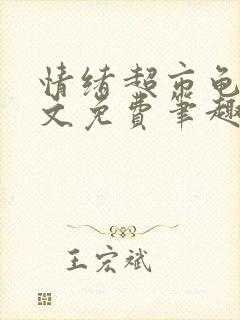 情绪超市龟
文免费笔趣
王宏斌